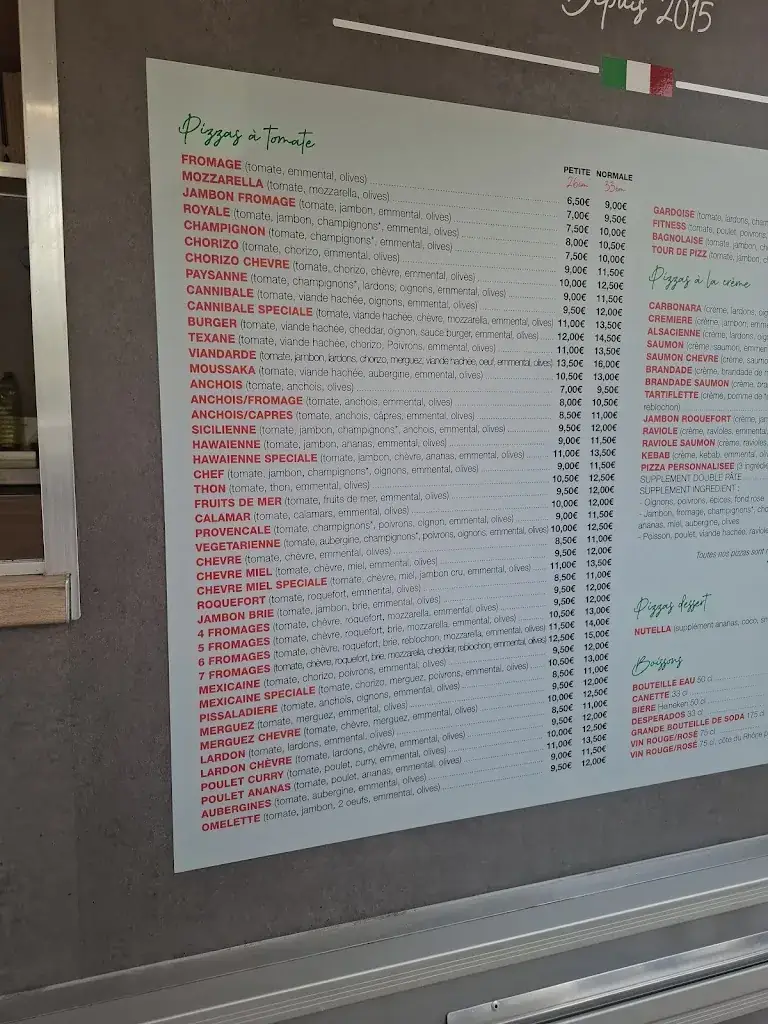 Depuis 2015
Pizzas à tomate
PETITE NORMALE
26cm 33cm
FROMAGE (tomate, emmental, olives) 6,50€ 9,00€
MOZZARELLA (tomate, mozzarella, olives) 7,00€ 9,50€
JAMBON FROMAGE (tomate, jambon, emmental, olives) 7,50€ 10,00€
ROYALE (tomate, jambon, champignons*, emmental, olives) 8,00€ 10,50€
CHAMPIGNON (tomate, champignons*, emmental, olives) 7,50€ 10,00€
CHORIZO (tomate, chorizo, emmental, olives) 9,00€ 11,50€
CHORIZO CHEVRE (tomate, chorizo, chèvre, emmental, olives) 10,00€ 12,50€
PAYSANNE (tomate, champignons*, lardons, oignons, emmental, olives) 9,00€ 11,50€
CANNIBALE (tomate, viande hachée, oignons, emmental, olives) 9,50€ 12,00€
CANNIBALE SPECIALE (tomate, viande hachée, chèvre, mozzarella, emmental, olives) 11,00€ 13,50€
BURGER (tomate, viande hachée, cheddar, oignon, sauce burger, emmental, olives) 12,00€ 14,50€
TEXANE (tomate, viande hachée, chorizo, Poivrons, emmental, olives) 11,00€ 13,50€
VIANDARDE (tomate, jambon, lardons, chorizo, merguez, viande hachée, oeuf, emmental, olives) 13,50€ 16,00€
MOUSSAKA (tomate, viande hachée, aubergine, emmental, olives) 10,50€ 13,00€
ANCHOIS (tomate, anchois, olives) 7,00€ 9,50€
ANCHOIS/FROMAGE (tomate, anchois, emmental, olives) 8,00€ 10,50€
ANCHOIS/CAPRES (tomate, anchois, câpres, emmental, olives) 8,50€ 11,00€
SICILIENNE (tomate, jambon, champignons*, anchois, emmental, olives) 9,50€ 12,00€
HAWAIENNE (tomate, jambon, ananas, emmental, olives) 9,00€ 11,50€
HAWAIENNE SPECIALE (tomate, jambon, chèvre, ananas, emmental, olives) 11,00€ 13,50€
CHEF (tomate, jambon, champignons*, oignons, emmental, olives) 9,00€ 11,50€
THON (tomate, thon, emmental, olives) 10,50€ 12,50€
FRUITS DE MER (tomate, fruits de mer, emmental, olives) 9,50€ 12,00€
CALAMAR (tomate, calamars, emmental, olives) 10,00€ 12,00€
PROVENCALE (tomate, champignons*, poivrons, oignon, emmental, olives) 9,00€ 11,50€
VEGETARIENNE (tomate, aubergine, champignons*, poivrons, oignons, emmental, olives) 10,00€ 12,50€
CHEVRE (tomate, chèvre, emmental, olives) 8,50€ 11,00€
CHEVRE MIEL (tomate, chèvre, miel, emmental, olives) 9,50€ 12,00€
CHEVRE MIEL SPECIALE (tomate, chèvre, miel, jambon cru, emmental, olives) 11,00€ 13,50€
ROQUEFORT (tomate, roquefort, emmental, olives) 8,50€ 11,00€
JAMBON BRIE (tomate, jambon, brie, emmental, olives) 9,50€ 12,00€
4 FROMAGES (tomate, chèvre, roquefort, mozzarella, emmental, olives) 9,50€ 12,00€
5 FROMAGES (tomate, chèvre, roquefort, brie, mozzarella, emmental, olives) 10,50€ 13,00€
6 FROMAGES (tomate, chèvre, roquefort, brie, reblochon, mozzarella, emmental, olives) 11,50€ 14,00€
7 FROMAGES (tomate, chèvre, roquefort, brie, mozzarella, cheddar, reblochon, emmental, olives) 12,50€ 15,00€
MEXICAINE (tomate, chorizo, poivrons, emmental, olives) 9,50€ 12,00€
MEXICAINE SPECIALE (tomate, chorizo, merguez, poivrons, emmental, olives) 10,50€ 13,00€
PISSALADIERE (tomate, anchois, oignons, emmental, olives) 8,50€ 11,00€
MERGUEZ (tomate, merguez, emmental, olives) 9,50€ 12,00€
MERGUEZ CHEVRE (tomate, chèvre, merguez, emmental, olives) 10,00€ 12,50€
LARDON (tomate, lardons, emmental, olives) 8,50€ 11,00€
LARDON CHÈVRE (tomate, lardons, chèvre, emmental, olives) 9,50€ 12,00€
POULET CURRY (tomate, poulet, curry, emmental, olives) 10,00€ 12,50€
POULET ANANAS (tomate, poulet, ananas, emmental, olives) 11,00€ 13,50€
AUBERGINES (tomate, aubergine, emmental, olives) 9,00€ 11,50€
OMELETTE (tomate, jambon, 2 oeufs, emmental, olives) 9,50€ 12,00€
GARDOISE (tomate, lardons,
FITNESS (tomate, poulet, poivrons,
BAGNOLAISE (tomate, jambon,
TOUR DE PIZZ (tomate, jambon,
Pizzas à la crème
CARBONARA (crème, lardons,
CREMIERE (crème, jambon,
ALSACIENNE (crème, lardons,
SAUMON (crème, saumon,
SAUMON CHEVRE (crème,
BRANDADE (crème, brandade de
BRANDADE SAUMON (crème,
TARTIFLETTE (crème, pomme de
reblochon)
JAMBON ROQUEFORT (crème,
RAVIOLE (crème, ravioles, emmental,
RAVIOLE SAUMON (crème, ravioles,
KEBAB (crème, kebab, emmental,
PIZZA PERSONNALISEE (3
SUPPLEMENT DOUBLE PÂTE
SUPPLEMENT INGREDIENT :
- Oignons, poivrons, épices, fond rose
- Jambon, fromage, champignons*,
ananas, miel, aubergine, olives
- Poisson, poulet, viande hachée,
Toutes nos pizzas sont
Pizzas dessert
NUTELLA (supplément ananas, coco,
Boissons
BOUTEILLE EAU 50 cl
CANETTE 33 cl
BIERE Heineken 50 cl
DESPERADOS 33 cl
GRANDE BOUTEILLE DE SODA 175 cl
VIN ROUGE/ROSÉ 75 cl
VIN ROUGE/ROSÉ 75 cl, côte du Rhône